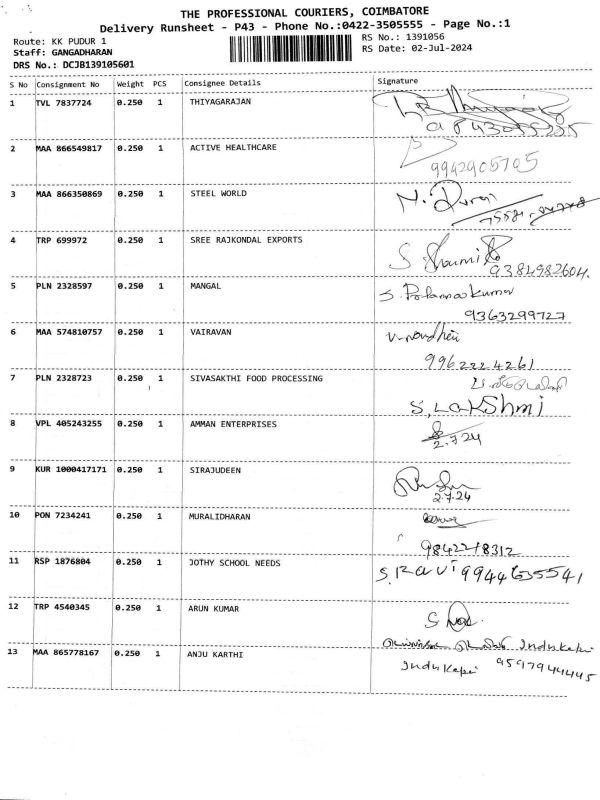 THE PROFESSIONAL COURIERS, COIMBATORE
Delivery Runsheet - P43 - Phone No.:0422-3505555 - Page No.:1
Route: KK PUDUR 1
Staff: GANGADHARAN
DRS No.: DCJB139105601
RS No.: 1391056
RS Date: 02-Jul-2024
S No Consignment No Weight PCS Consignee Details Signature
1 TVL 7837724 0.250 1 THIYAGARAJAN
2 MAA 866549817 0.250 1 ACTIVE HEALTHCARE
9942905705
3 MAA 866350869 0.250 1 STEEL WORLD
4 TRP 699972 0.250 1 SREE RAJKONDAL EXPORTS
9384982604.
5 PLN 2328597 0.250 1 MANGAL
9363299727
6 MAA 574810757 0.250 1 VAIRAVAN
9962224261
7 PLN 2328723 0.250 1 SIVASAKTHI FOOD PROCESSING
S. LAKSHMI
8 VPL 405243255 0.250 1 AMMAN ENTERPRISES
2.7.24
9 KUR 1000417171 0.250 1 SIRAJUDEEN
2.7.24
10 PON 7234241 0.250 1 MURALIDHARAN
9842218312
11 RSP 1876804 0.250 1 JOTHY SCHOOL NEEDS
S. Ravi 9944635541
12 TRP 4540345 0.250 1 ARUN KUMAR
13 MAA 865778167 0.250 1 ANJU KARTHI
9597944445